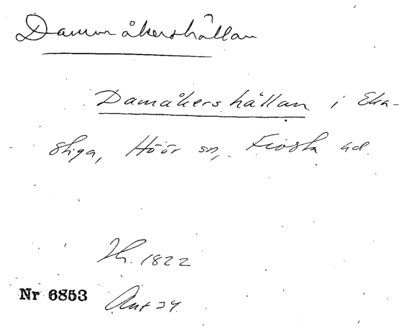 Dammåkershällan
Damåkershällan i Eka-
stiga, Höör sn, Frosta hd.
Th. 1822
Nr 6853